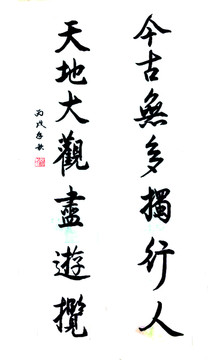 今古無多獨行人
天地大觀盡遊攬
丙戌冬